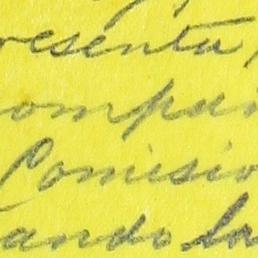 resenta
compañ
Comisio
ando la